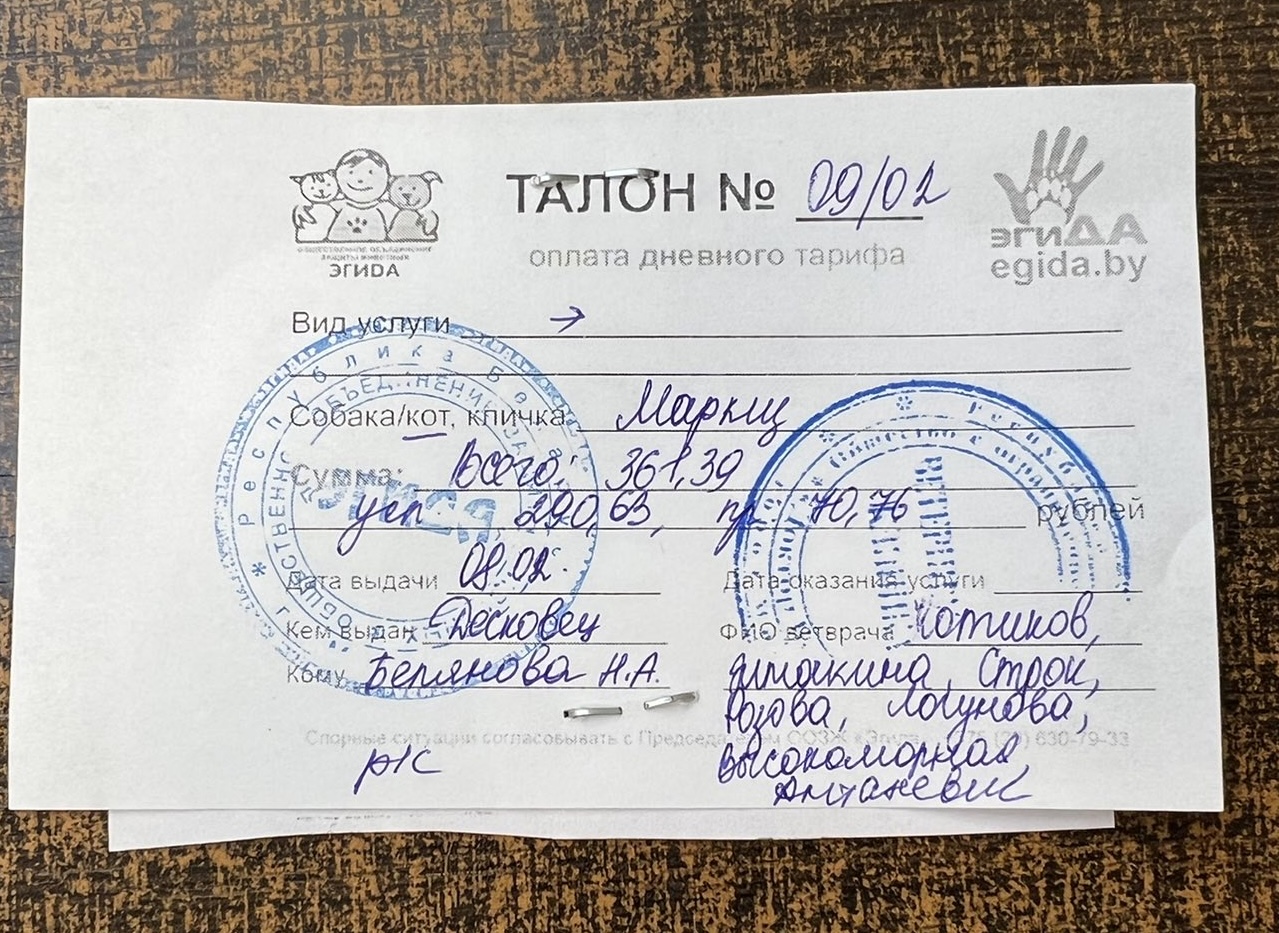 ТАЛОН № 09/02
оплата дневного тарифа
ОБЩЕСТВЕННОЕ ОБЪЕДИНЕНИЕ
ЗАЩИТЫ ЖИВОТНЫХ
ЭГИДА
эгиДА
egida.by
Вид услуги →
Собака/кот, кличка Маркиз
Сумма: Всего: 361,39
усл 290,63, пр 70,76 рублей
Дата выдачи 08.02.
Дата оказания услуги
Кем выдан Десковец
ФИО ветврача Котиков,
Кому Н.А.
Строк,
Розова, Логунова,
Спорные ситуации согласовывать с Председателем ООЗЖ «Эгида» 630-79-33
р/с
Высокоморная,
Антаневич
Республика Бе
ОБЩЕСТВЕННО ОБЪЕДИНЕНИЕ ЗА